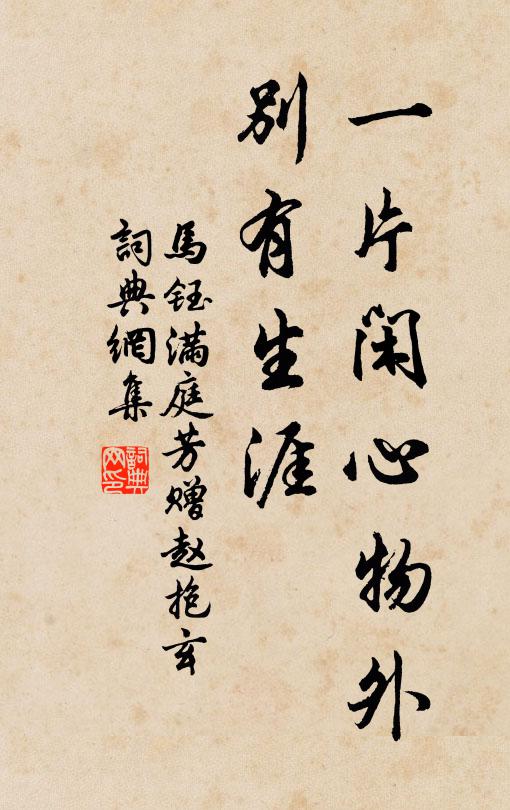 一片闲心物外
别有生涯
馬鈺满庭芳赠赵抱玄
詞典網集
詞典网印